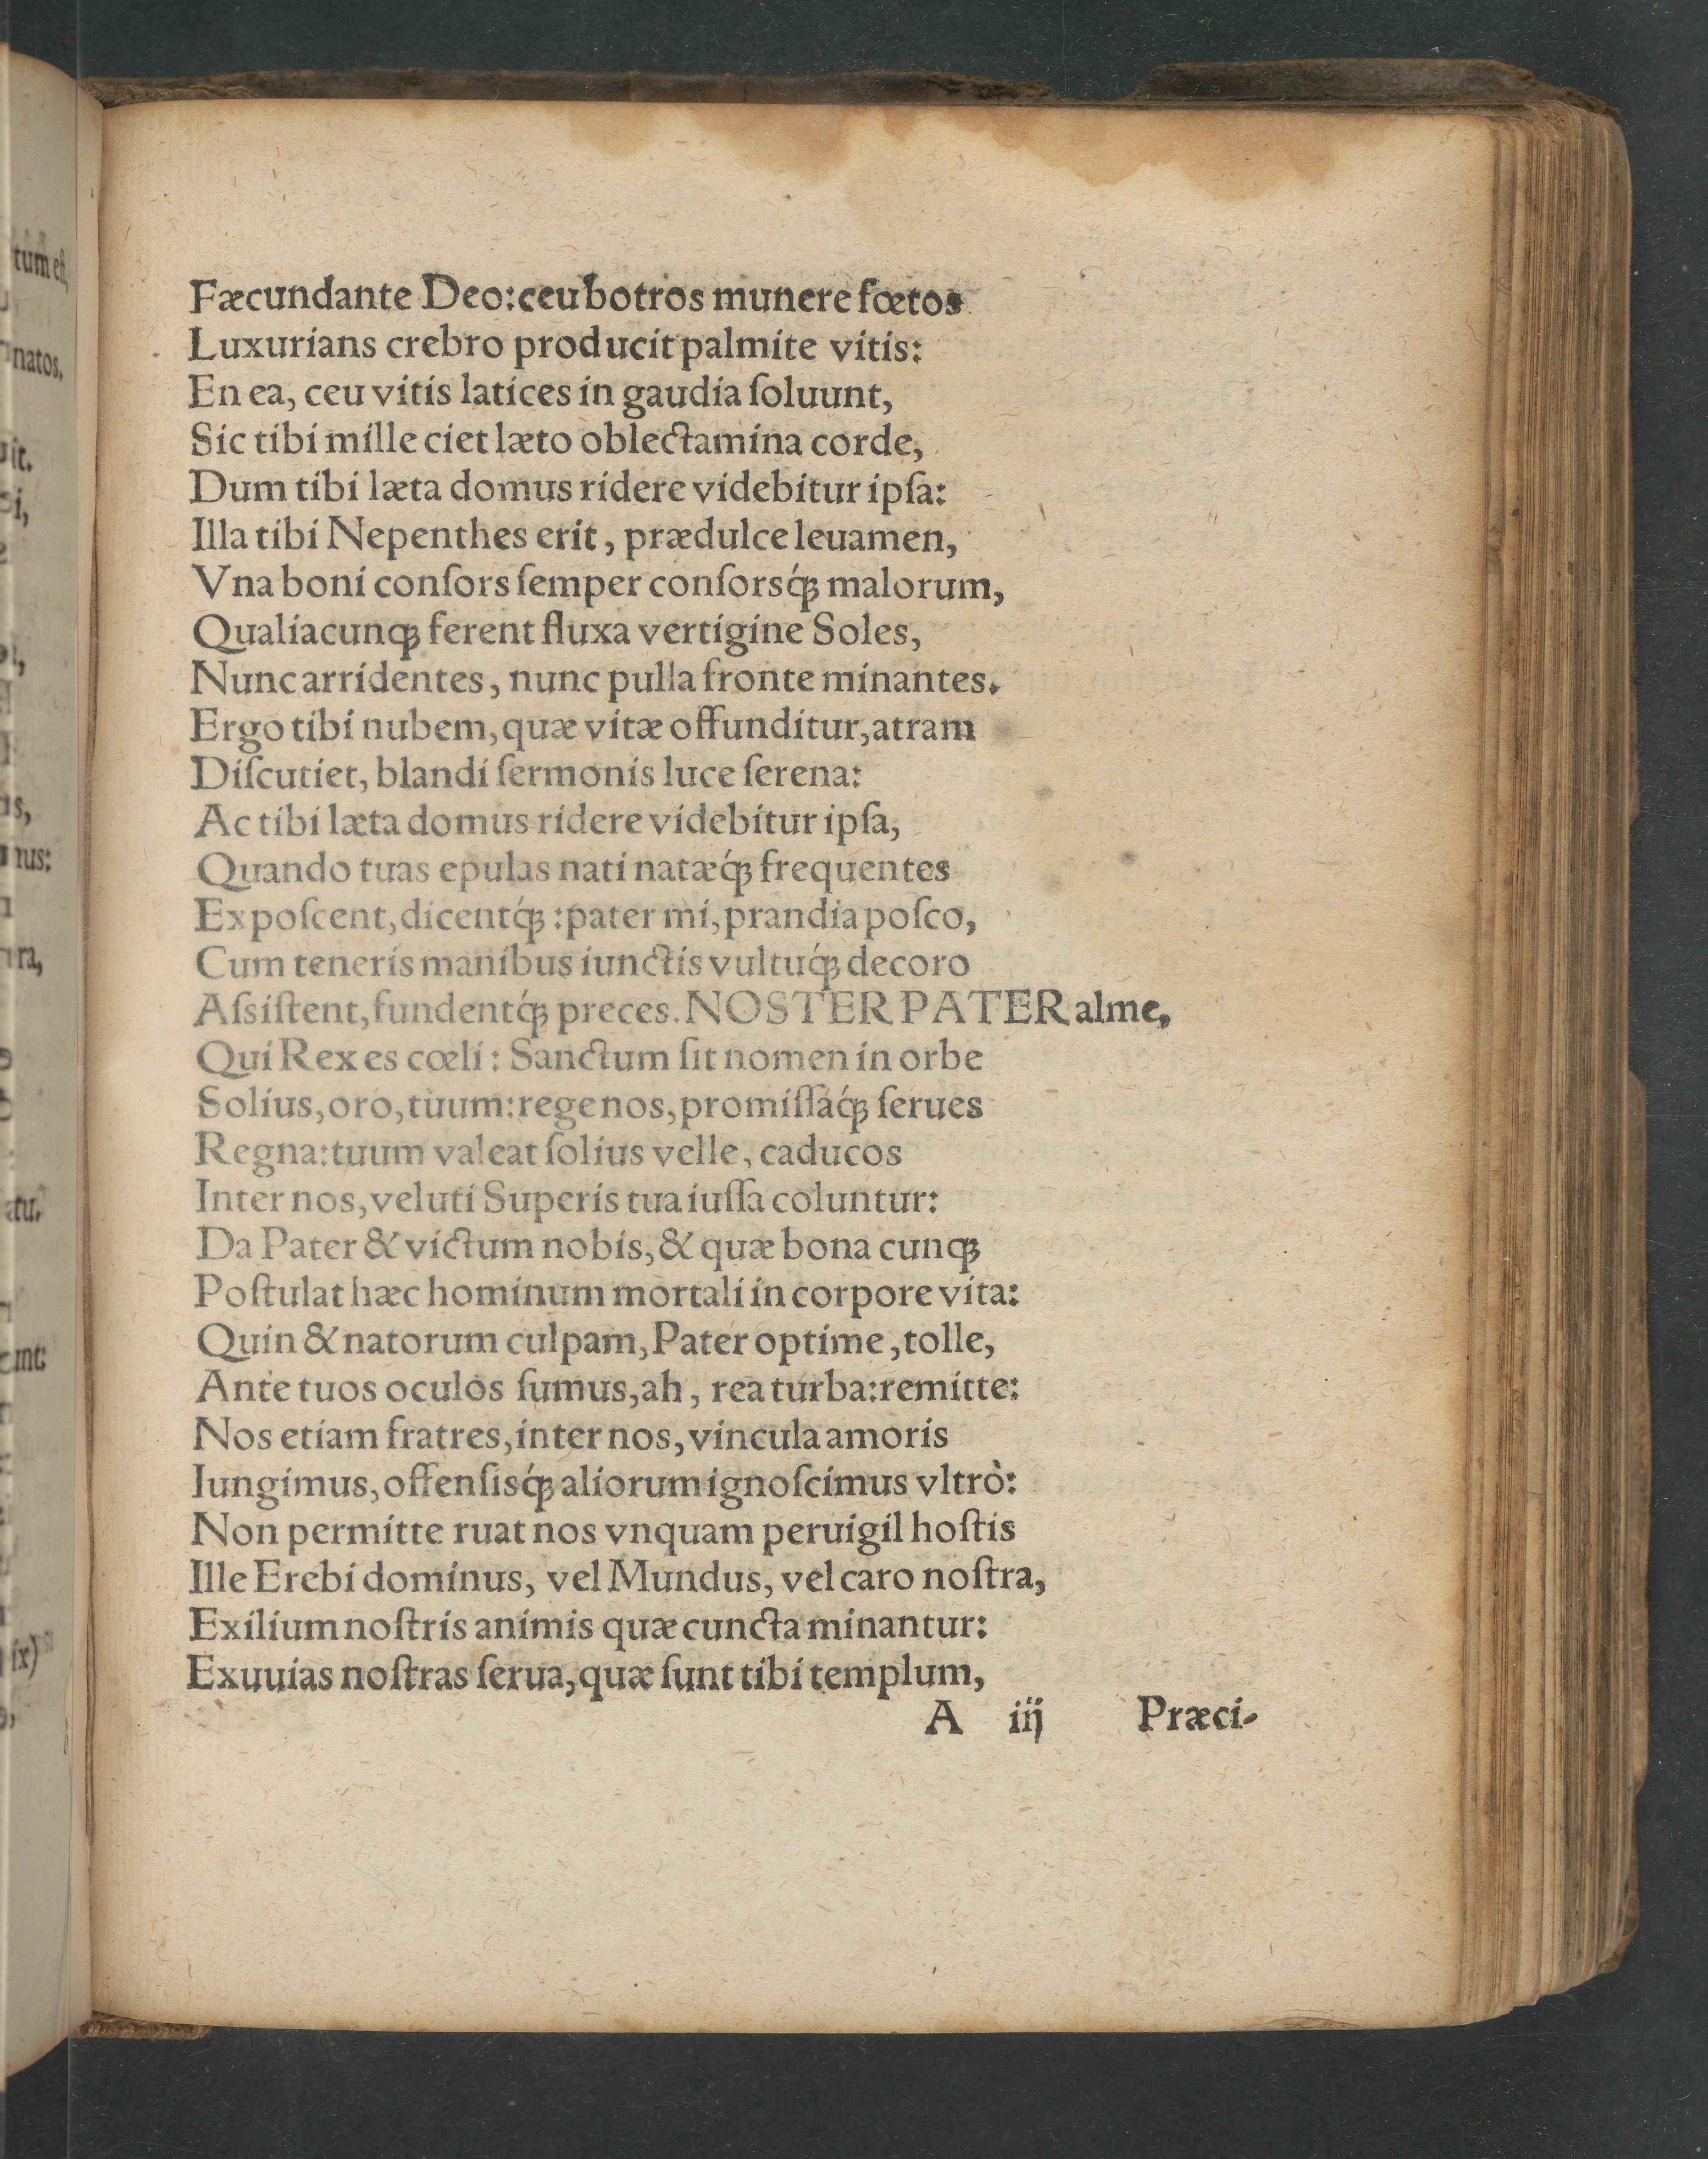 Fæcundante Deo: ceu botros munere fœtos
Luxurians crebro producit palmite vitis:
En ea, ceu vitis latices in gaudia ſoluunt,
Sic tibi mille ciet læto oblectamina corde,
Dum tibi læta domus ridere videbitur ipſa:
Illa tibi Nepenthes erit, prædulce leuamen,
Vna boni conſors ſemper conſorsq́ꝫ malorum,
Qualiacunqꝫ ferent fluxa vertigine Soles,
Nunc arridentes, nunc pulla fronte minantes.
Ergo tibi nubem, quæ vitæ offunditur, atram
Diſcutiet, blandi ſermonis luce ſerena:
Ac tibi læta domus ridere videbitur ipſa,
Quando tuas epulas nati natæq́ꝫ frequentes
Expoſcent, dicentq́ꝫ: pater mi, prandia poſco,
Cum teneris manibus iunctis vultuq́ꝫ decoro
Aſsiſtent, fundentq́ꝫ preces. NOSTER PATER alme,
Qui Rex es cœli: Sanctum ſit nomen in orbe
Solius, oro, tuum: rege nos, promiſſaq́ꝫ ſerues
Regna: tuum valeat ſolius velle, caducos
Inter nos, veluti Superis tua iuſſa coluntur:
Da Pater & victum nobis, & quæ bona cunqꝫ
Poſtulat hæc hominum mortali in corpore vita:
Quin & natorum culpam, Pater optime, tolle,
Ante tuos oculos ſumus, ah, rea turba: remitte:
Nos etiam fratres, inter nos, vincula amoris
Iungimus, offenſisq́ꝫ aliorum ignoſcimus vltrò:
Non permitte ruat nos vnquam peruigil hoſtis
Ille Erebi dominus, vel Mundus, vel caro noſtra,
Exilium noſtris animis quæ cuncta minantur:
Exuuias noſtras ſerua, quæ ſunt tibi templum,
A iij Præci-